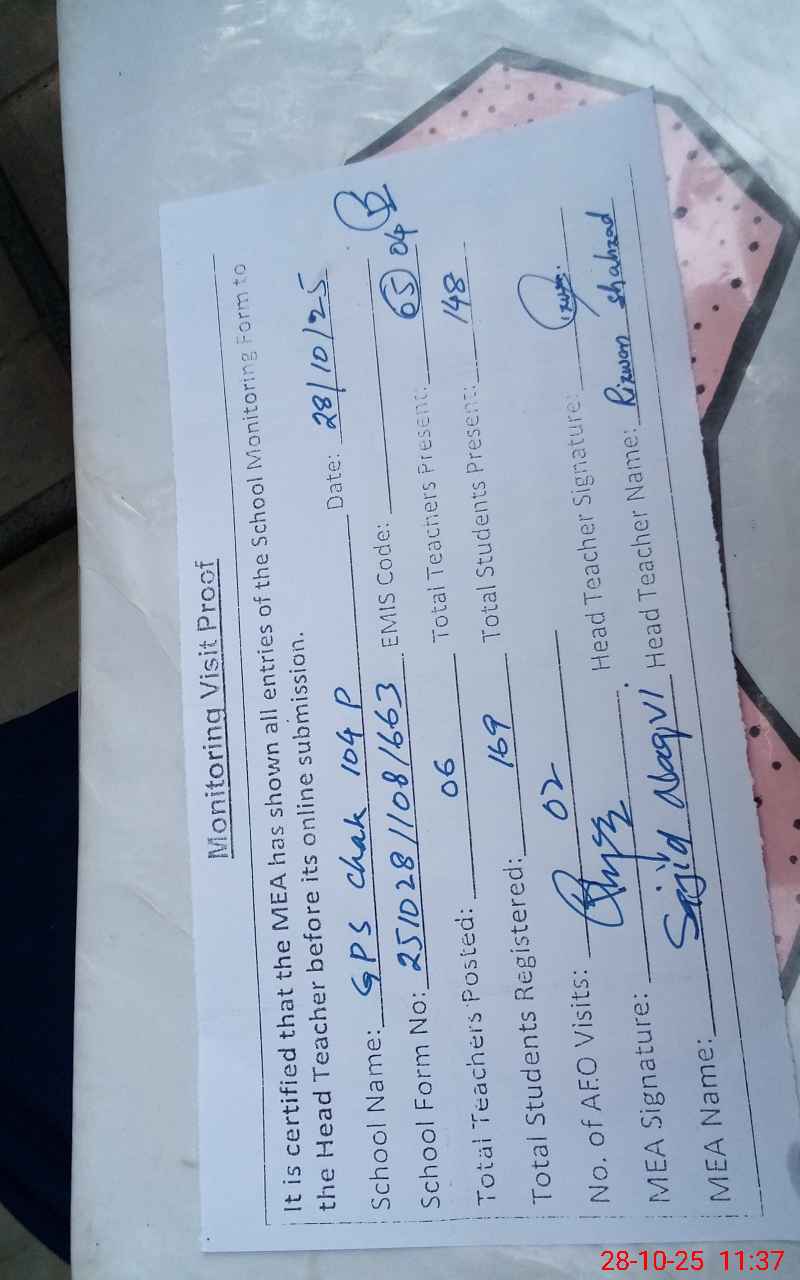 Monitoring Visit Proof
It is certified that the MEA has shown all entries of the School Monitoring Form to
the Head Teacher before its online submission.
School Name: GPS Chak 104 P Date: 28/10/25
School Form No: 25102811081663 EMIS Code:
Total Teachers Posted: 06 Total Teachers Present: 05 04
Total Students Registered: 169 Total Students Present: 148
No. of AEO Visits: 02
MEA Signature: Head Teacher Signature:
MEA Name: Sajid Naqvi Head Teacher Name: Rizwan Shahzad
28-10-25 11:37